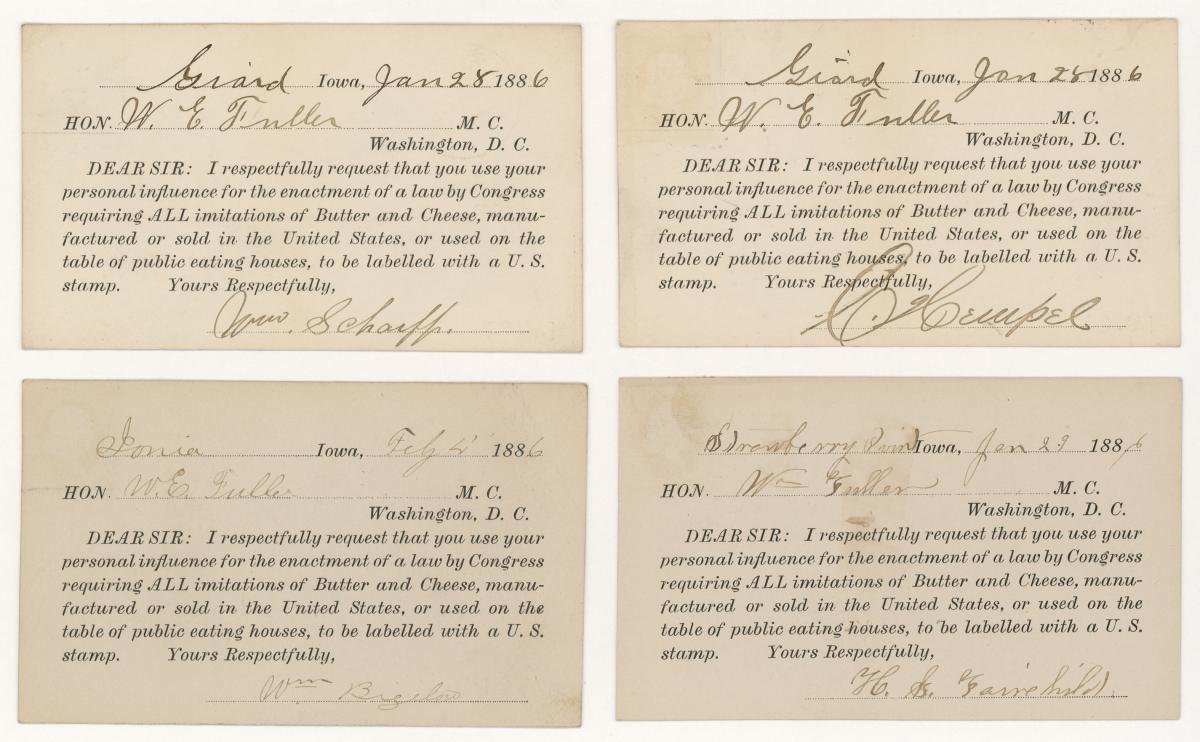 Giard Iowa, Jan 28 1886
HON. W. E. Fuller M. C.
Washington, D. C.
DEAR SIR: I respectfully request that you use your
personal influence for the enactment of a law by Congress
requiring ALL imitations of Butter and Cheese, manu-
factured or sold in the United States, or used on the
table of public eating houses, to be labelled with a U. S.
stamp. Yours Respectfully,
Wm. Scharff.
Giard Iowa, Jan 28 1886
HON. W. E. Fuller M. C.
Washington, D. C.
DEAR SIR: I respectfully request that you use your
personal influence for the enactment of a law by Congress
requiring ALL imitations of Butter and Cheese, manu-
factured or sold in the United States, or used on the
table of public eating houses, to be labelled with a U. S.
stamp. Yours Respectfully,
Hempel
Ionia Iowa, Feb 4 1886
HON. W. E. Fuller M. C.
Washington, D. C.
DEAR SIR: I respectfully request that you use your
personal influence for the enactment of a law by Congress
requiring ALL imitations of Butter and Cheese, manu-
factured or sold in the United States, or used on the
table of public eating houses, to be labelled with a U. S.
stamp. Yours Respectfully,
Wm Bigelow
Strawberry Point Iowa, Jan 29 1886
HON. Wm Fuller M. C.
Washington, D. C.
DEAR SIR: I respectfully request that you use your
personal influence for the enactment of a law by Congress
requiring ALL imitations of Butter and Cheese, manu-
factured or sold in the United States, or used on the
table of public eating houses, to be labelled with a U. S.
stamp. Yours Respectfully,
H. Fairchild.